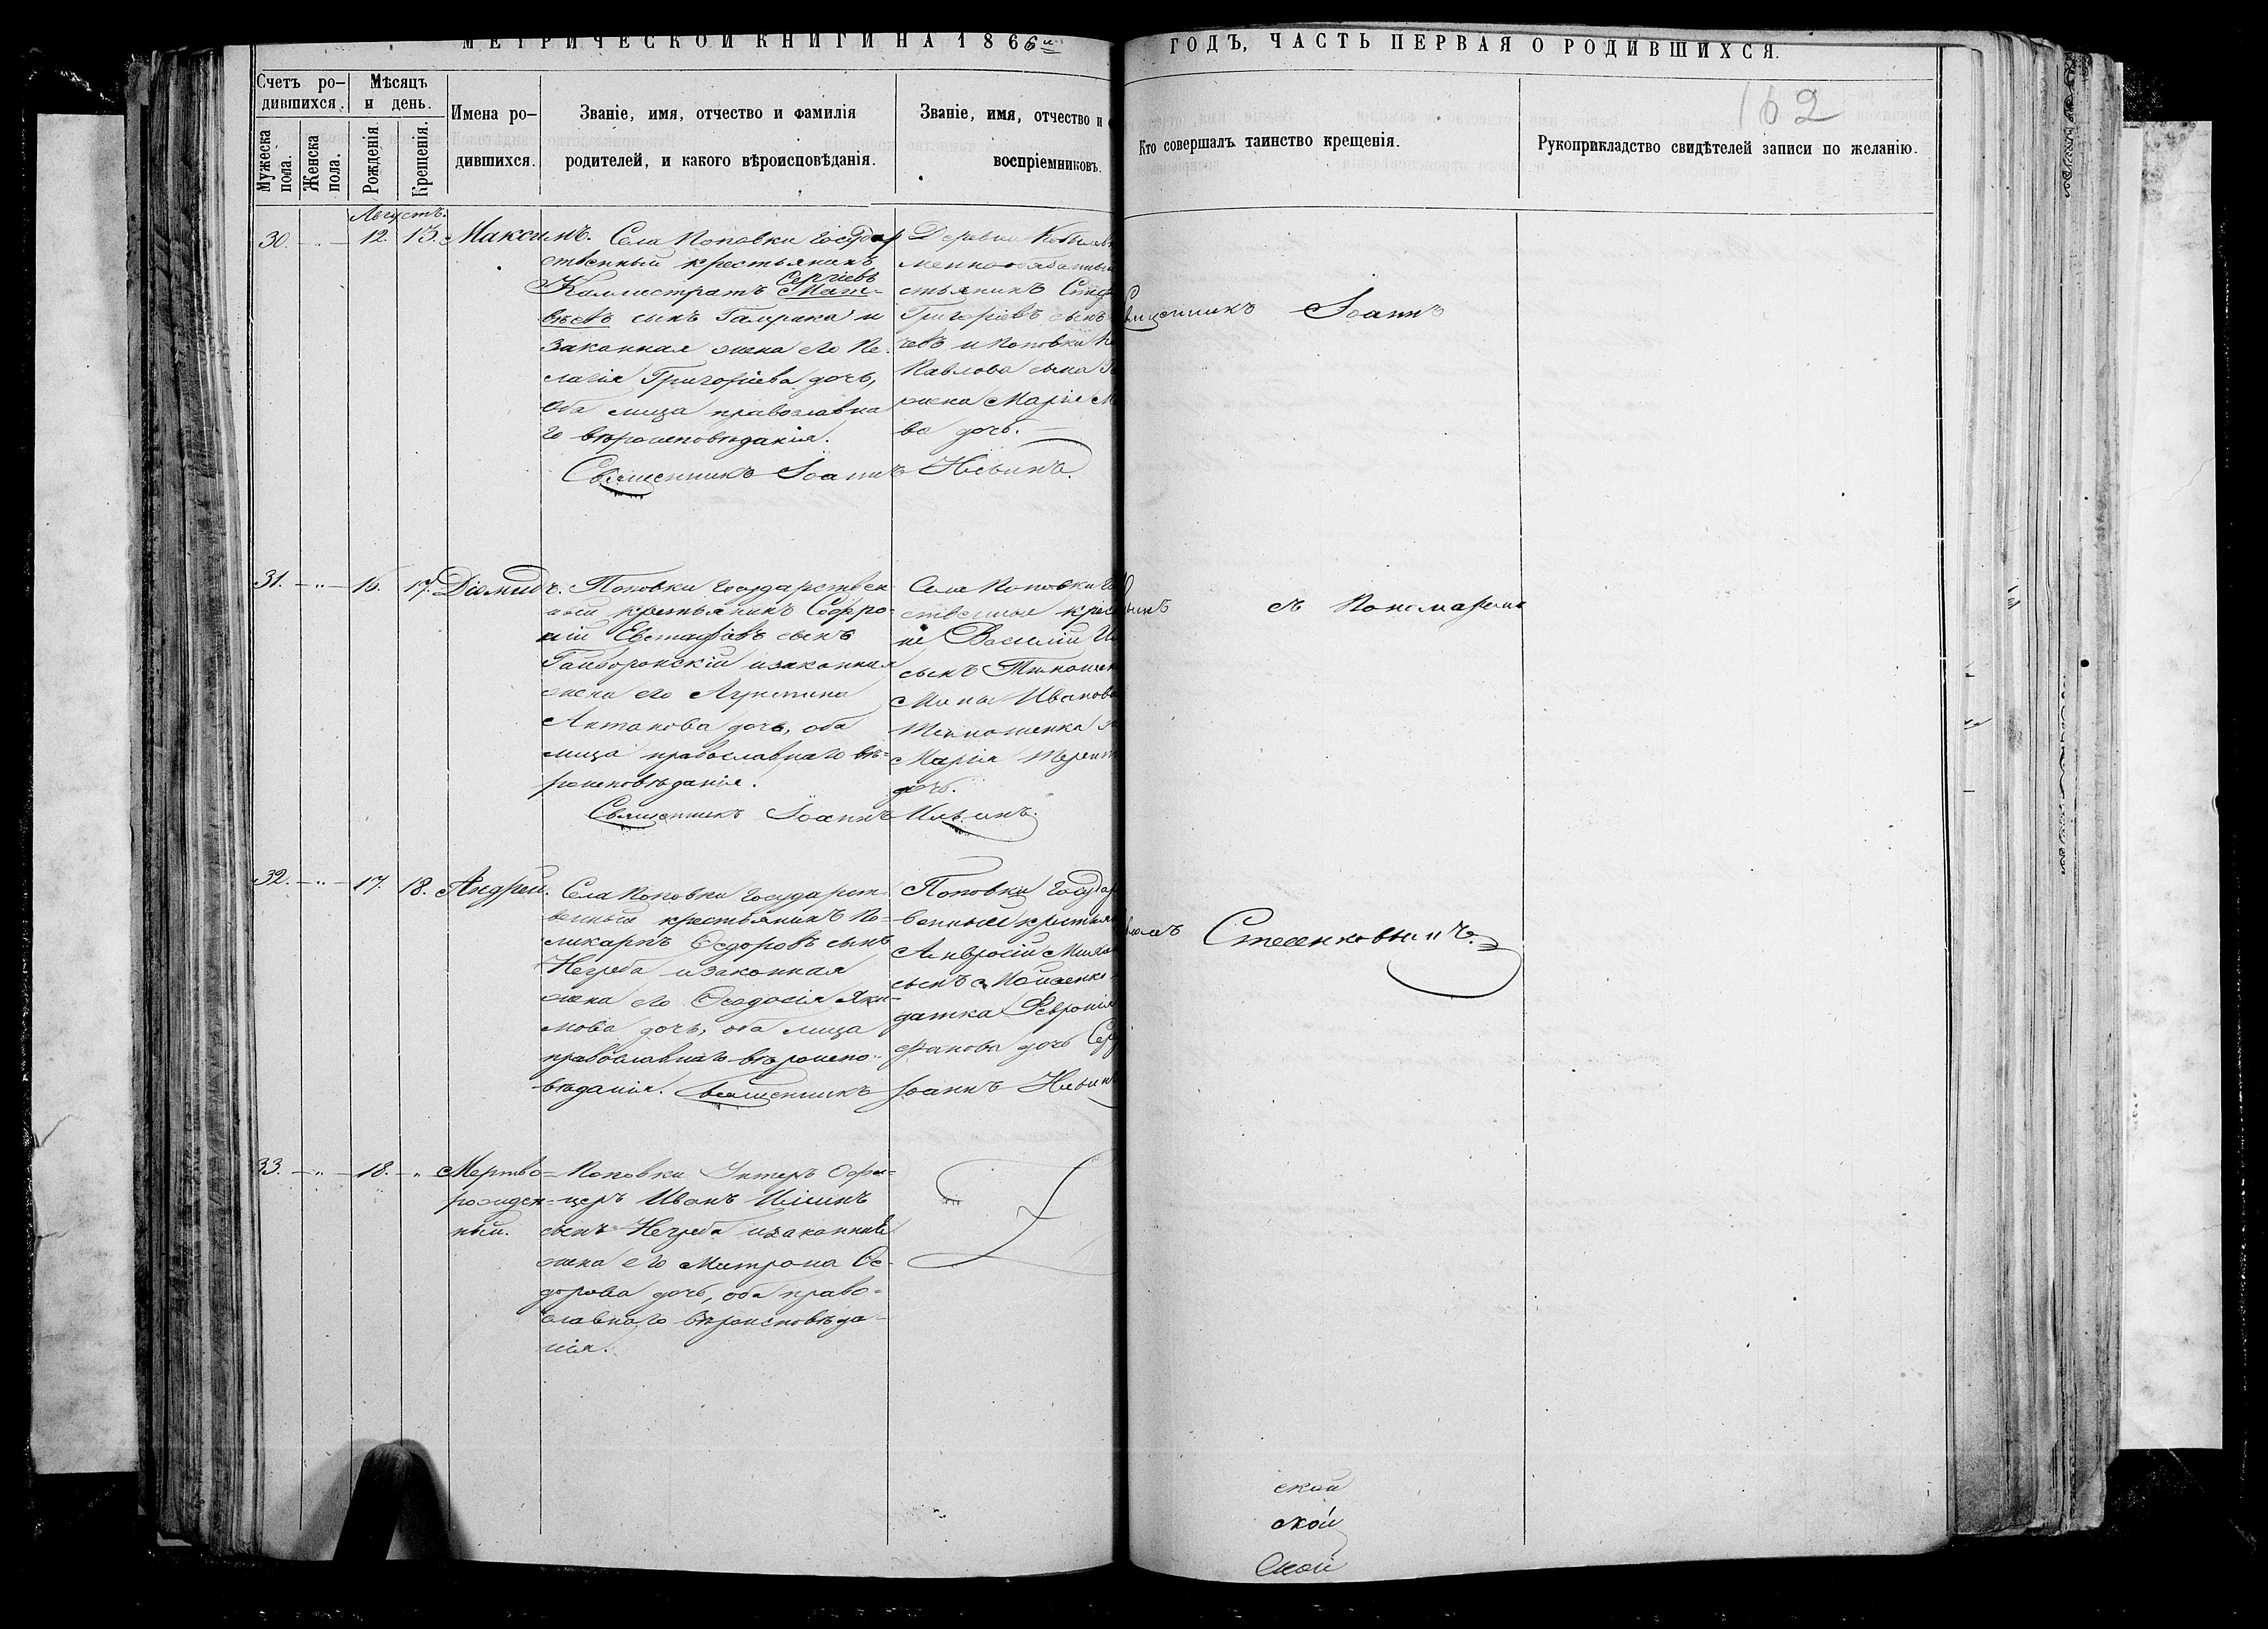 МЕТРИЧЕСКОЙ КНИГИ НА 1866й ГОДЪ, ЧАСТЬ ПЕРВАЯ О РОДИВШИХСЯ.
162
Счетъ ро-
дившихся.
Мужеска
пола.
Женска
пола.
Мѣсяцъ
и день.
Рожденія.
Крещенія.
Имена ро-
дившихся.
Званіе, имя, отчество и фамилія
родителей, и какого вѣроисповѣданія.
Званіе, имя, отчество и
воспріемниковъ.
Кто совершалъ таинство крещенія.
Рукоприкладство свидѣтелей записи по желанію.
Августъ.
30. 12. 13. Максимъ.
Села Поповки Государ
ственный крестьянинъ
Сергіевъ
Каллистратъ Мат-
вѣевъ сынъ и
законная жена его Пе-
лагія Григоріева дочь,
оба лица православна
го вѣроисповѣданія.
Деревни
стьянинъ
Григоріевъ сынъ
и Поповки
Павлова сына
жена Марія
ва дочь.
Священникъ Іоаннъ Ильинъ.
31. 16. 17. Діомидъ.
Поповки Государствен
ный крестьянинъ Софро-
ній Евстафіевъ сынъ
Гайворонскій и законная
жена его Агрипина
Антонова дочь, оба
лица православнаго вѣ-
роисповѣданія.
Села Поповки Го
ственные крес
не Василій
сынъ
Иванова
Марія Терент
дочь.
Священникъ Іоаннъ Ильинъ.
32. 17. 18. Андрей.
Села Поповки Государст
венный крестьянинъ По-
ликарпъ Ѳедоровъ сынъ
Негреба и законная
жена его Ѳеодосія Яки-
мова дочь, оба лица
православнаго вѣроиспо-
вѣданія.
Поповки Государ
венный крестьян
Амвросій Миха
сынъ Моисенко
датка Февронія
фанова дочь
Священникъ Іоаннъ Ильинъ
33. 18. Мертво-
рожден-
ный.
Поповки Унтеръ Офи-
церъ Иванъ Ильинъ
сынъ Негреба и законная
жена его Митрона Ѳе-
дорова дочь, оба право-
славнаго вѣроисповѣда-
нія.
Іоаннъ
съ Пономаремъ
ской
ской
ской